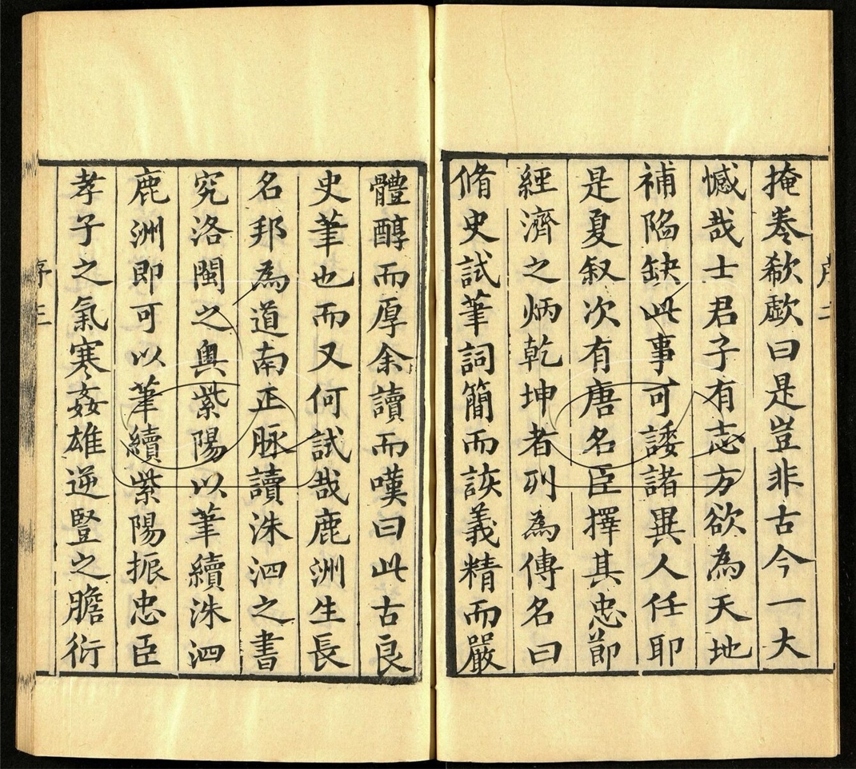 序二
掩卷欷歔曰是豈非古今一大
憾哉士君子有志方欲為天地
補陷缺此事可諉諸異人任耶
是夏叙次有唐名臣擇其忠節
經濟之炳乾坤者列為傳名曰
脩史試筆詞簡而該義精而嚴
體醇而厚余讀而嘆曰此古良
史筆也而又何試哉鹿洲生長
名邦為道南正脉讀洙泗之書
究洛閩之奧紫陽以筆續洙泗
鹿洲即可以筆續紫陽振忠臣
孝子之氣寒姦雄逆豎之膽衍
序三